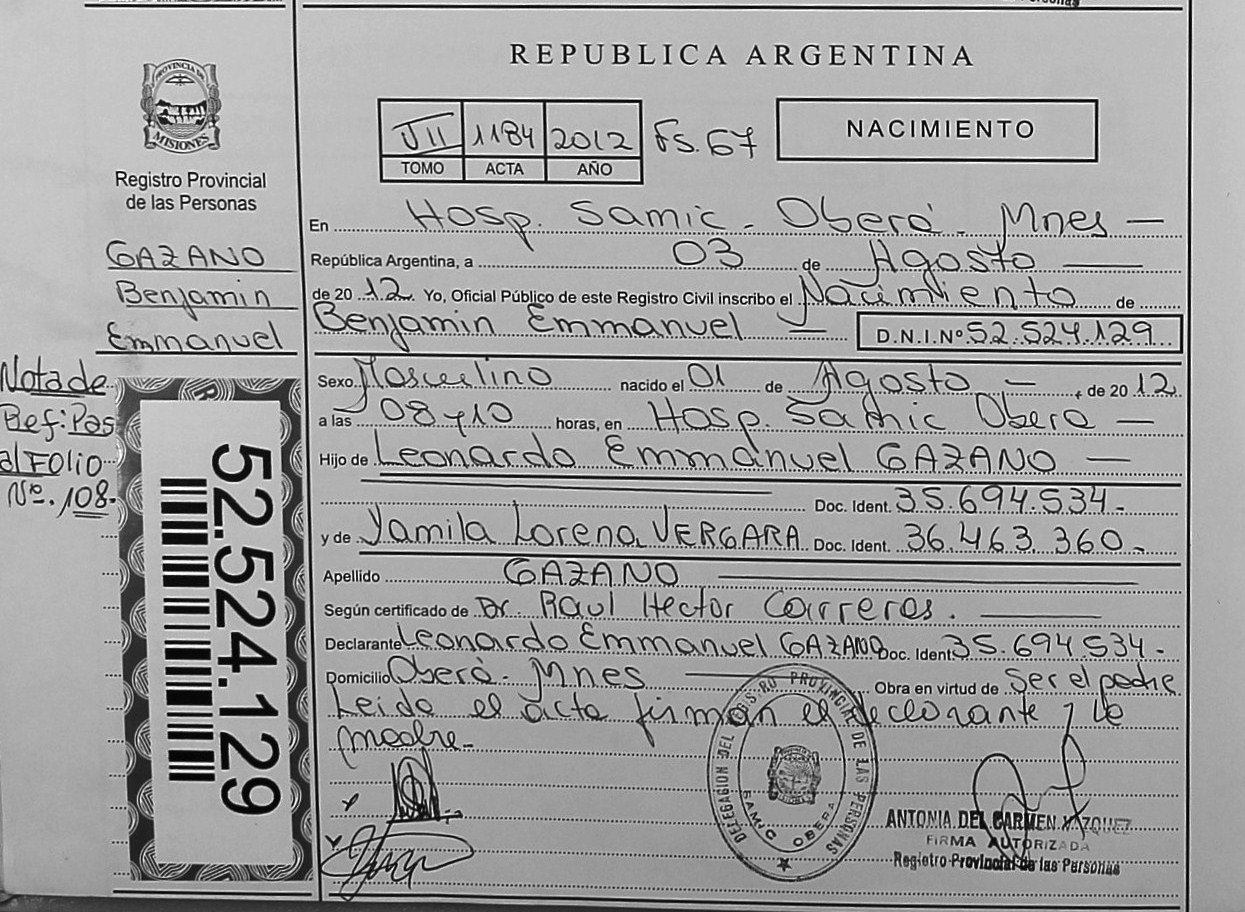 REPUBLICA ARGENTINA
PROVINCIA DE MISIONES
Registro Provincial
de las Personas
GAZANO
Benjamin
Emmanuel
Nota de
Ref: Pas
al FOLIO
Nº. 108.
52.524.129
VII 1184 2012 Fs. 67
TOMO ACTA AÑO
NACIMIENTO
En Hosp. Samic - Oberá - Mnes —
República Argentina, a 03 de Agosto —
de 2012. Yo, Oficial Público de este Registro Civil inscribo el Nacimiento de
Benjamin Emmanuel — D.N.I.Nº 52.524.129
Sexo Masculino nacido el 01 de Agosto — , de 2012
a las 08 y 10 horas, en Hosp. Samic Oberá —
Hijo de Leonardo Emmanuel GAZANO —
Doc. Ident. 35.694.534-
y de Yamila Lorena VERGARA Doc. Ident. 36.463.360-
Apellido GAZANO
Según certificado de Dr. Raul Hector Carreras.
Declarante Leonardo Emmanuel GAZANO Doc. Ident 35.694534-
Domicilio Oberá - Mnes Obra en virtud de ser el padre
Leida el acta firman el declarante y la
madre-
DELEGACION DEL REGISTRO PROVINCIAL DE LAS PERSONAS
SAMIC OBERA
ANTONIA DEL CARMEN VAZQUEZ
FIRMA AUTORIZADA
Registro Provincial de las Personas